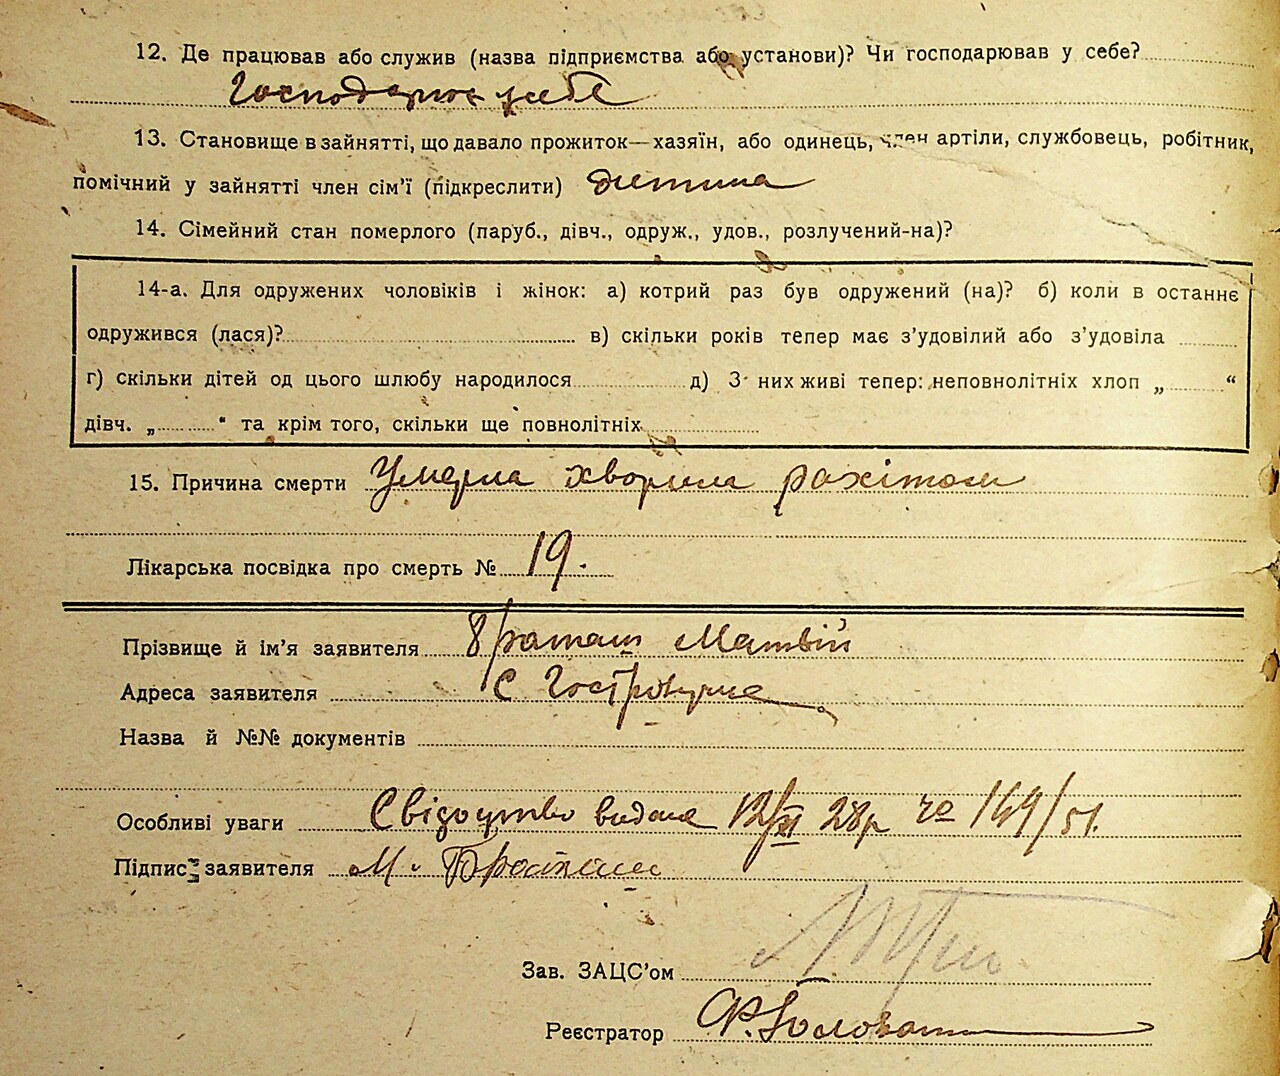 12. Де працював або служив (назва підприємства або установи)? Чи господарював у себе?
Господарює у себе
13. Становище в зайнятті, що давало прожиток—хазяїн, або одинець, член артіли, службовець, робітник,
помічний у зайнятті член сім'ї (підкреслити) дитина
14. Сімейний стан померлого (паруб., дівч., одруж., удов., розлучений-на)?
14-а. Для одружених чоловіків і жінок: а) котрий раз був одружений (на)? б) коли в останнє
одружився (лася)? в) скільки років тепер має з'удовілий або з'удовіла
г) скільки дітей од цього шлюбу народилося д) З них живі тепер: неповнолітніх хлоп „ “
дівч. „ “ та крім того, скільки ще повнолітніх
15. Причина смерти Умерла хворила рахітом
Лікарська посвідка про смерть № 19.
Прізвище й ім'я заявителя Браташ Матвій
Адреса заявителя С
Назва й №№ документів
Особливі уваги Свідоцтво видане 12/XI 28р за 149/51.
Підпис заявителя М. Браташ
Зав. ЗАЦС'ом
Реєстратор Ф.